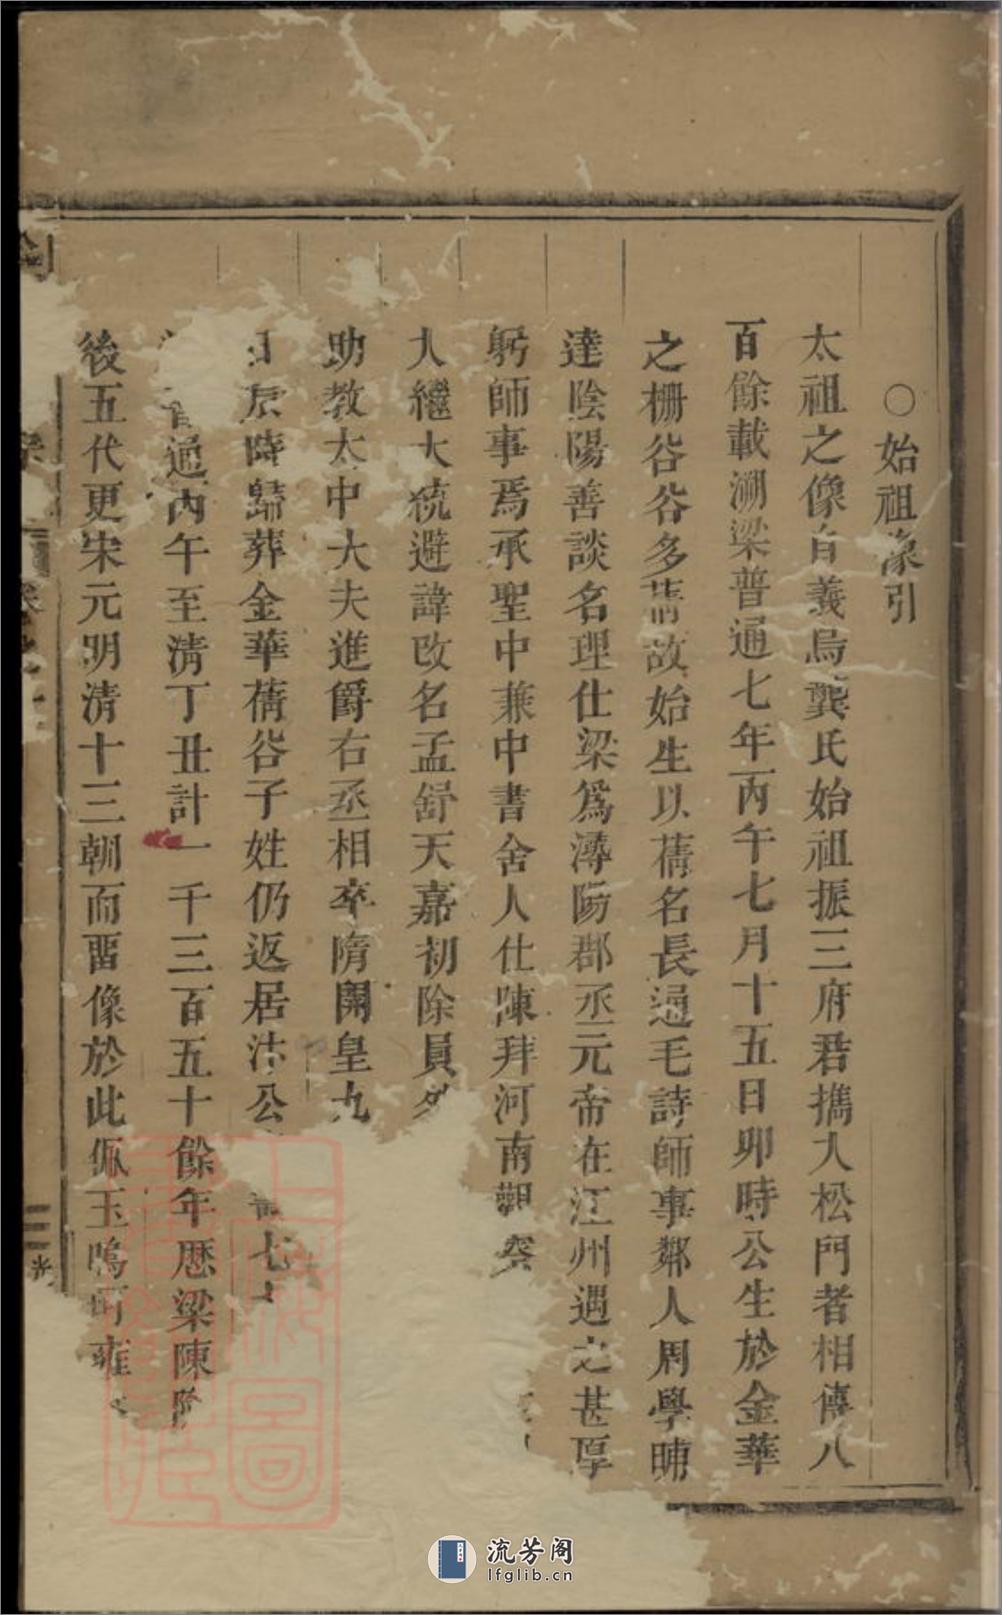 ○始祖像引
太祖之像自義烏龔氏始祖振三府君擕入松門者相傳八
百餘載溯梁普通七年丙午七月十五日卯時公生於金華
之栅谷谷多蒨故始生以蒨名長通毛詩師事鄰人周學晡
達陰陽善談名理仕梁爲潯陽郡丞元帝在江州遇之甚厚
躬師事焉承聖中兼中書舍人仕陳拜河南
人繼大統避諱改名孟舒天嘉初除員外
助教太中大夫進爵右丞相卒隋開皇九
辰時歸葬金華蒨谷子姓仍返居 公 七
通丙午至淸丁丑計一千三百五十餘年歷梁陳隋
後五代更宋元明淸十三朝而畱像於此佩玉鳴 雍
上海圖書館藏
流芳阁
lfglib.cn